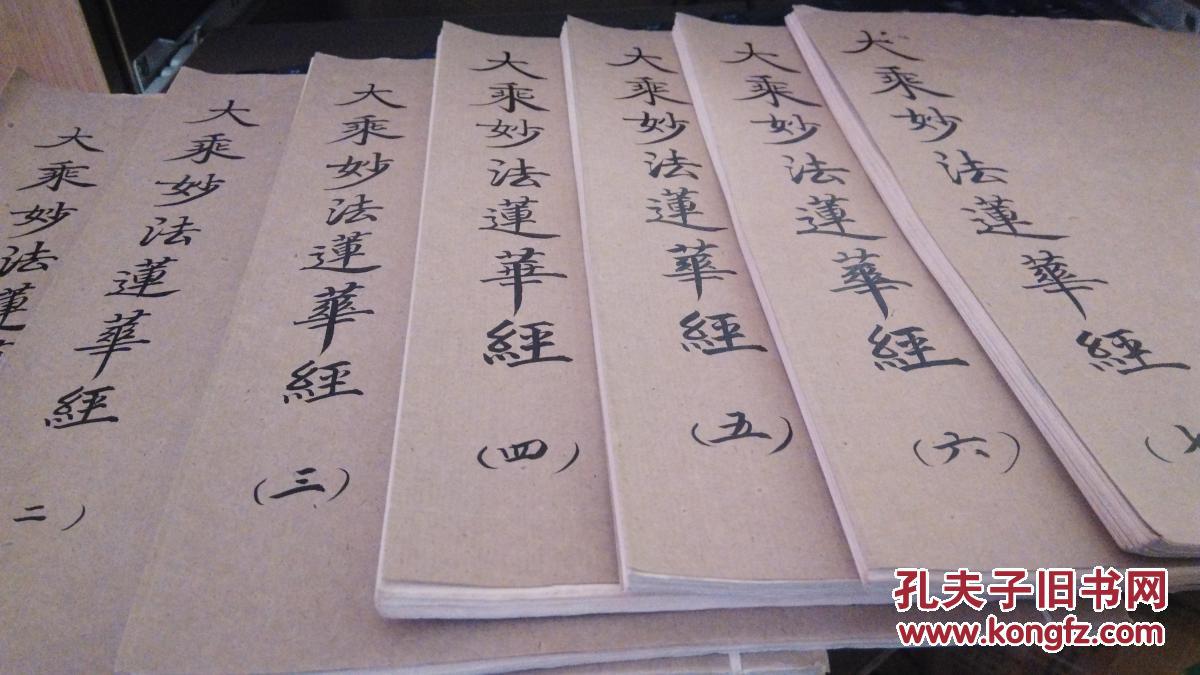 大乘妙法蓮
大乘妙法蓮華經
二）
大乘妙法蓮華經
（三）
大乘妙法蓮華經
（四）
大乘妙法蓮華經
（五）
大乘妙法蓮華經
（六）
大乘妙法蓮華經
孔夫子旧书网
www.kongfz.com